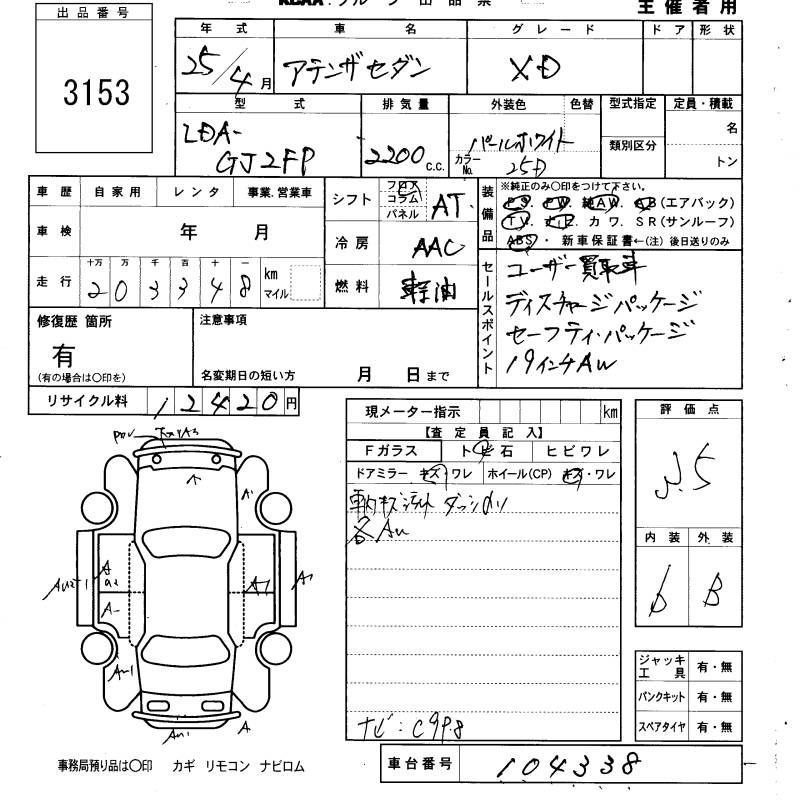 出品番号
3153
主催者用
年式 車名 グレード ドア 形状
25/4月 アテンザセダン XD
型式 排気量 外装色 色替 型式指定 定員・積載
LDA-
GJ2FP 2200c.c. パールホワイト
カラーNo. 25D
類別区分 名
トン
車歴 自家用 レンタ 事業.営業車
車検 年 月
走行 十万 万 千 百 十 一
203348 km マイル
シフト フロア コラム パネル AT
冷房 AAC
燃料 軽油
装備品
※純正のみ○印をつけて下さい。
PS. PW. 純AW. AB(エアバック)
TV. ナビ. カワ. SR(サンルーフ)
ABS・ 新車保証書←(注)後日送りのみ
セールスポイント
ユーザー買取車
ディスチャージパッケージ
セーフティ・パッケージ
19インチAW
修復歴 箇所
有
(有の場合は○印を)
注意事項
名変期日の短い方 月 日まで
リサイクル料 12420円
現メーター指示 km
【査定員記入】
Fガラス ト 石 ヒビワレ
ドアミラー キズ・ワレ ホイール(CP) キズ・ワレ
各AW
ナビ:C9P8
評価点
3.5
内装 外装
B
A
A
A
A-
A
ジャッキ
工具 有・無
パンクキット 有・無
スペアタイヤ 有・無
事務局預り品は○印 カギ リモコン ナビロム
車台番号 104338